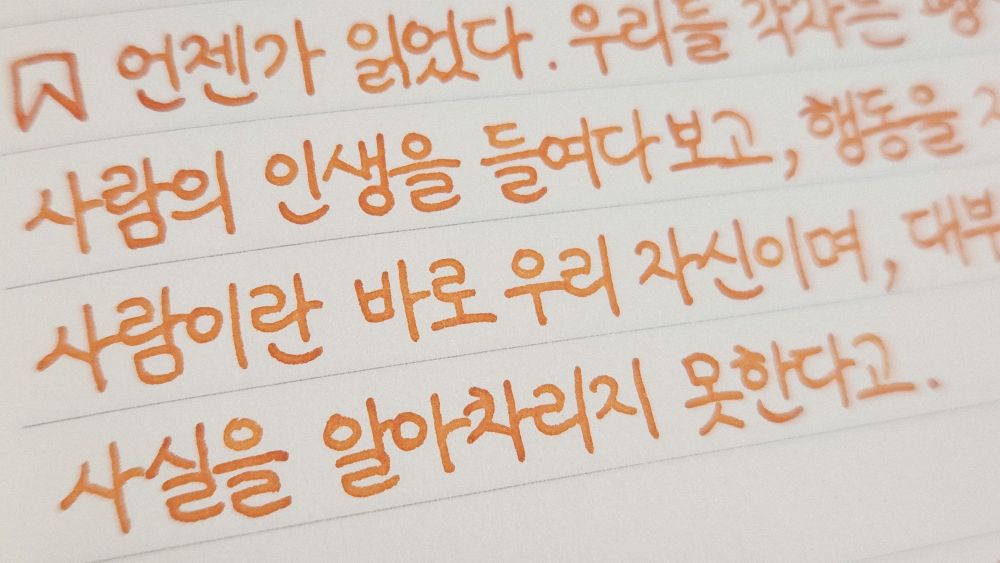 언젠가 읽었다. 우리들 각자는
사람의 인생을 들여다보고, 행동을
사람이란 바로 우리 자신이며,
사실을 알아차리지 못한다고.